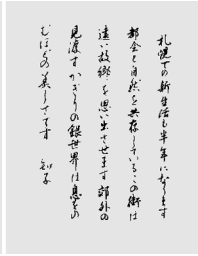 札幌での新生活も半年になります
都会と自然を共存しているこの街は
遠い故郷を思い出させます 郊外の
見渡すかぎりの銀世界は息をの
むほどの美しさです 知子